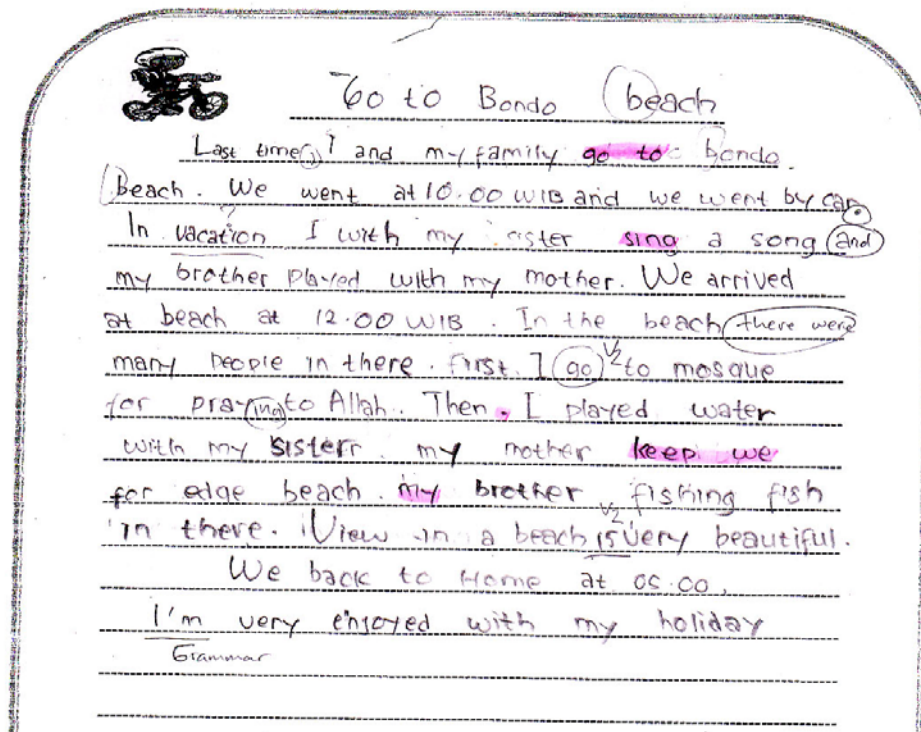 Go to Bondo beach
Last time, I and my family go to bondo
beach. We went at 10.00 WIB and we went by car.
In vacation I with my sister sing a song and
my brother played with my mother. We arrived
at beach at 12.00 WIB. In the beach there were
many people in there. first. I go V2 to mosque
for praying to Allah. Then, I played water
with my sisterr. my mother keep we
for edge beach. my brother fishing fish
in there. View in a beach is V2 very beautiful.
We back to Home at 05.00.
I'm very enjoyed with my holiday
Grammar